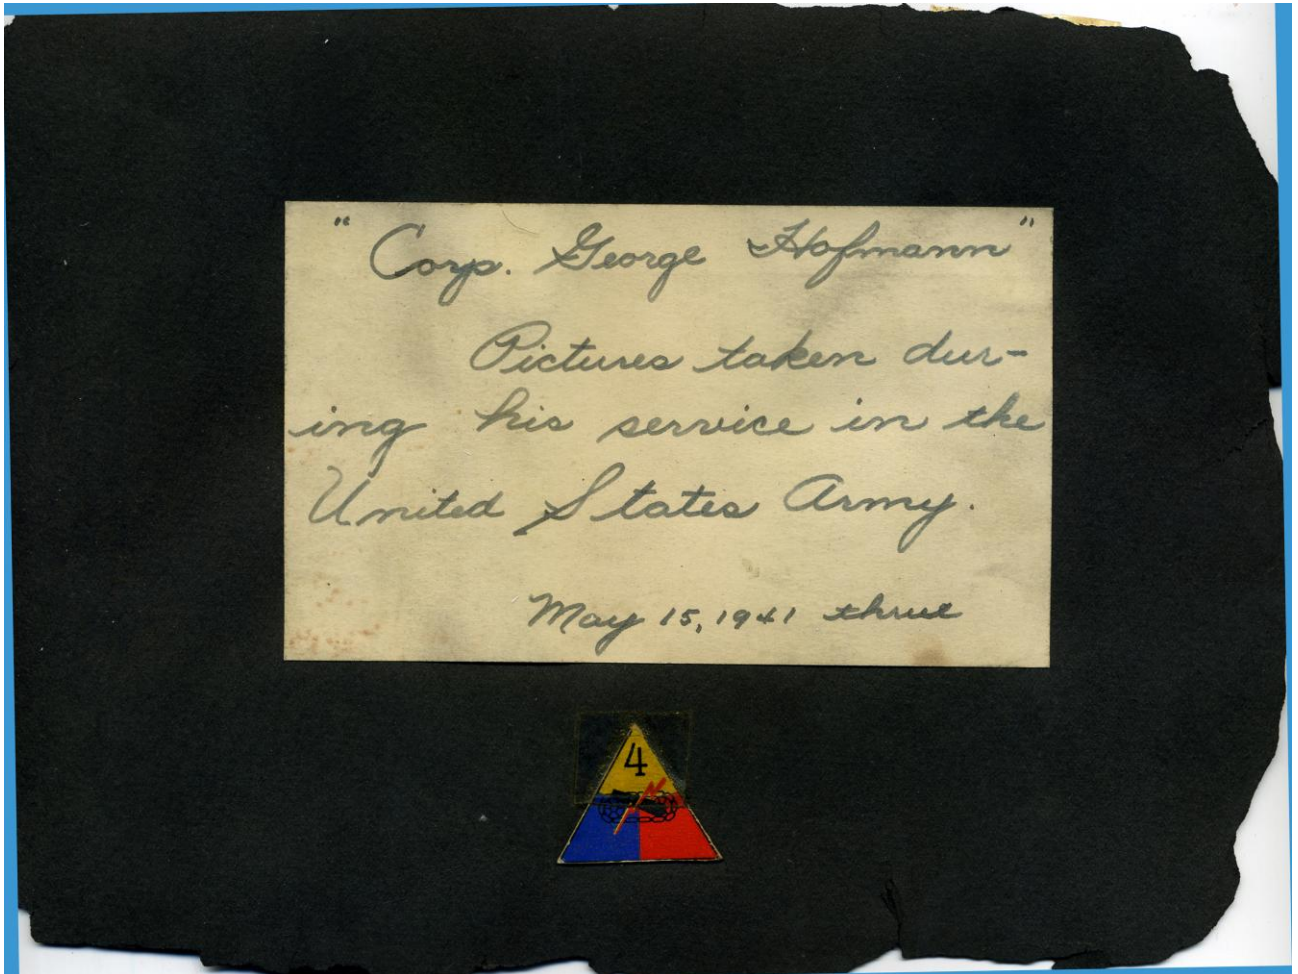 " Corp. George Hofmann "
Pictures taken dur-
ing his service in the
United States Army.
May 15, 1941 thru
4